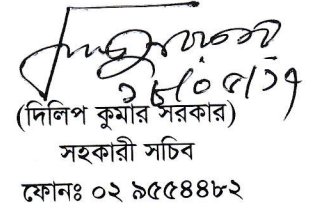 ১৮/০৫/১৭
(দিলিপ কুমার সরকার)
সহকারী সচিব
ফোনঃ ০২ ৯৫৫৪৪৮২